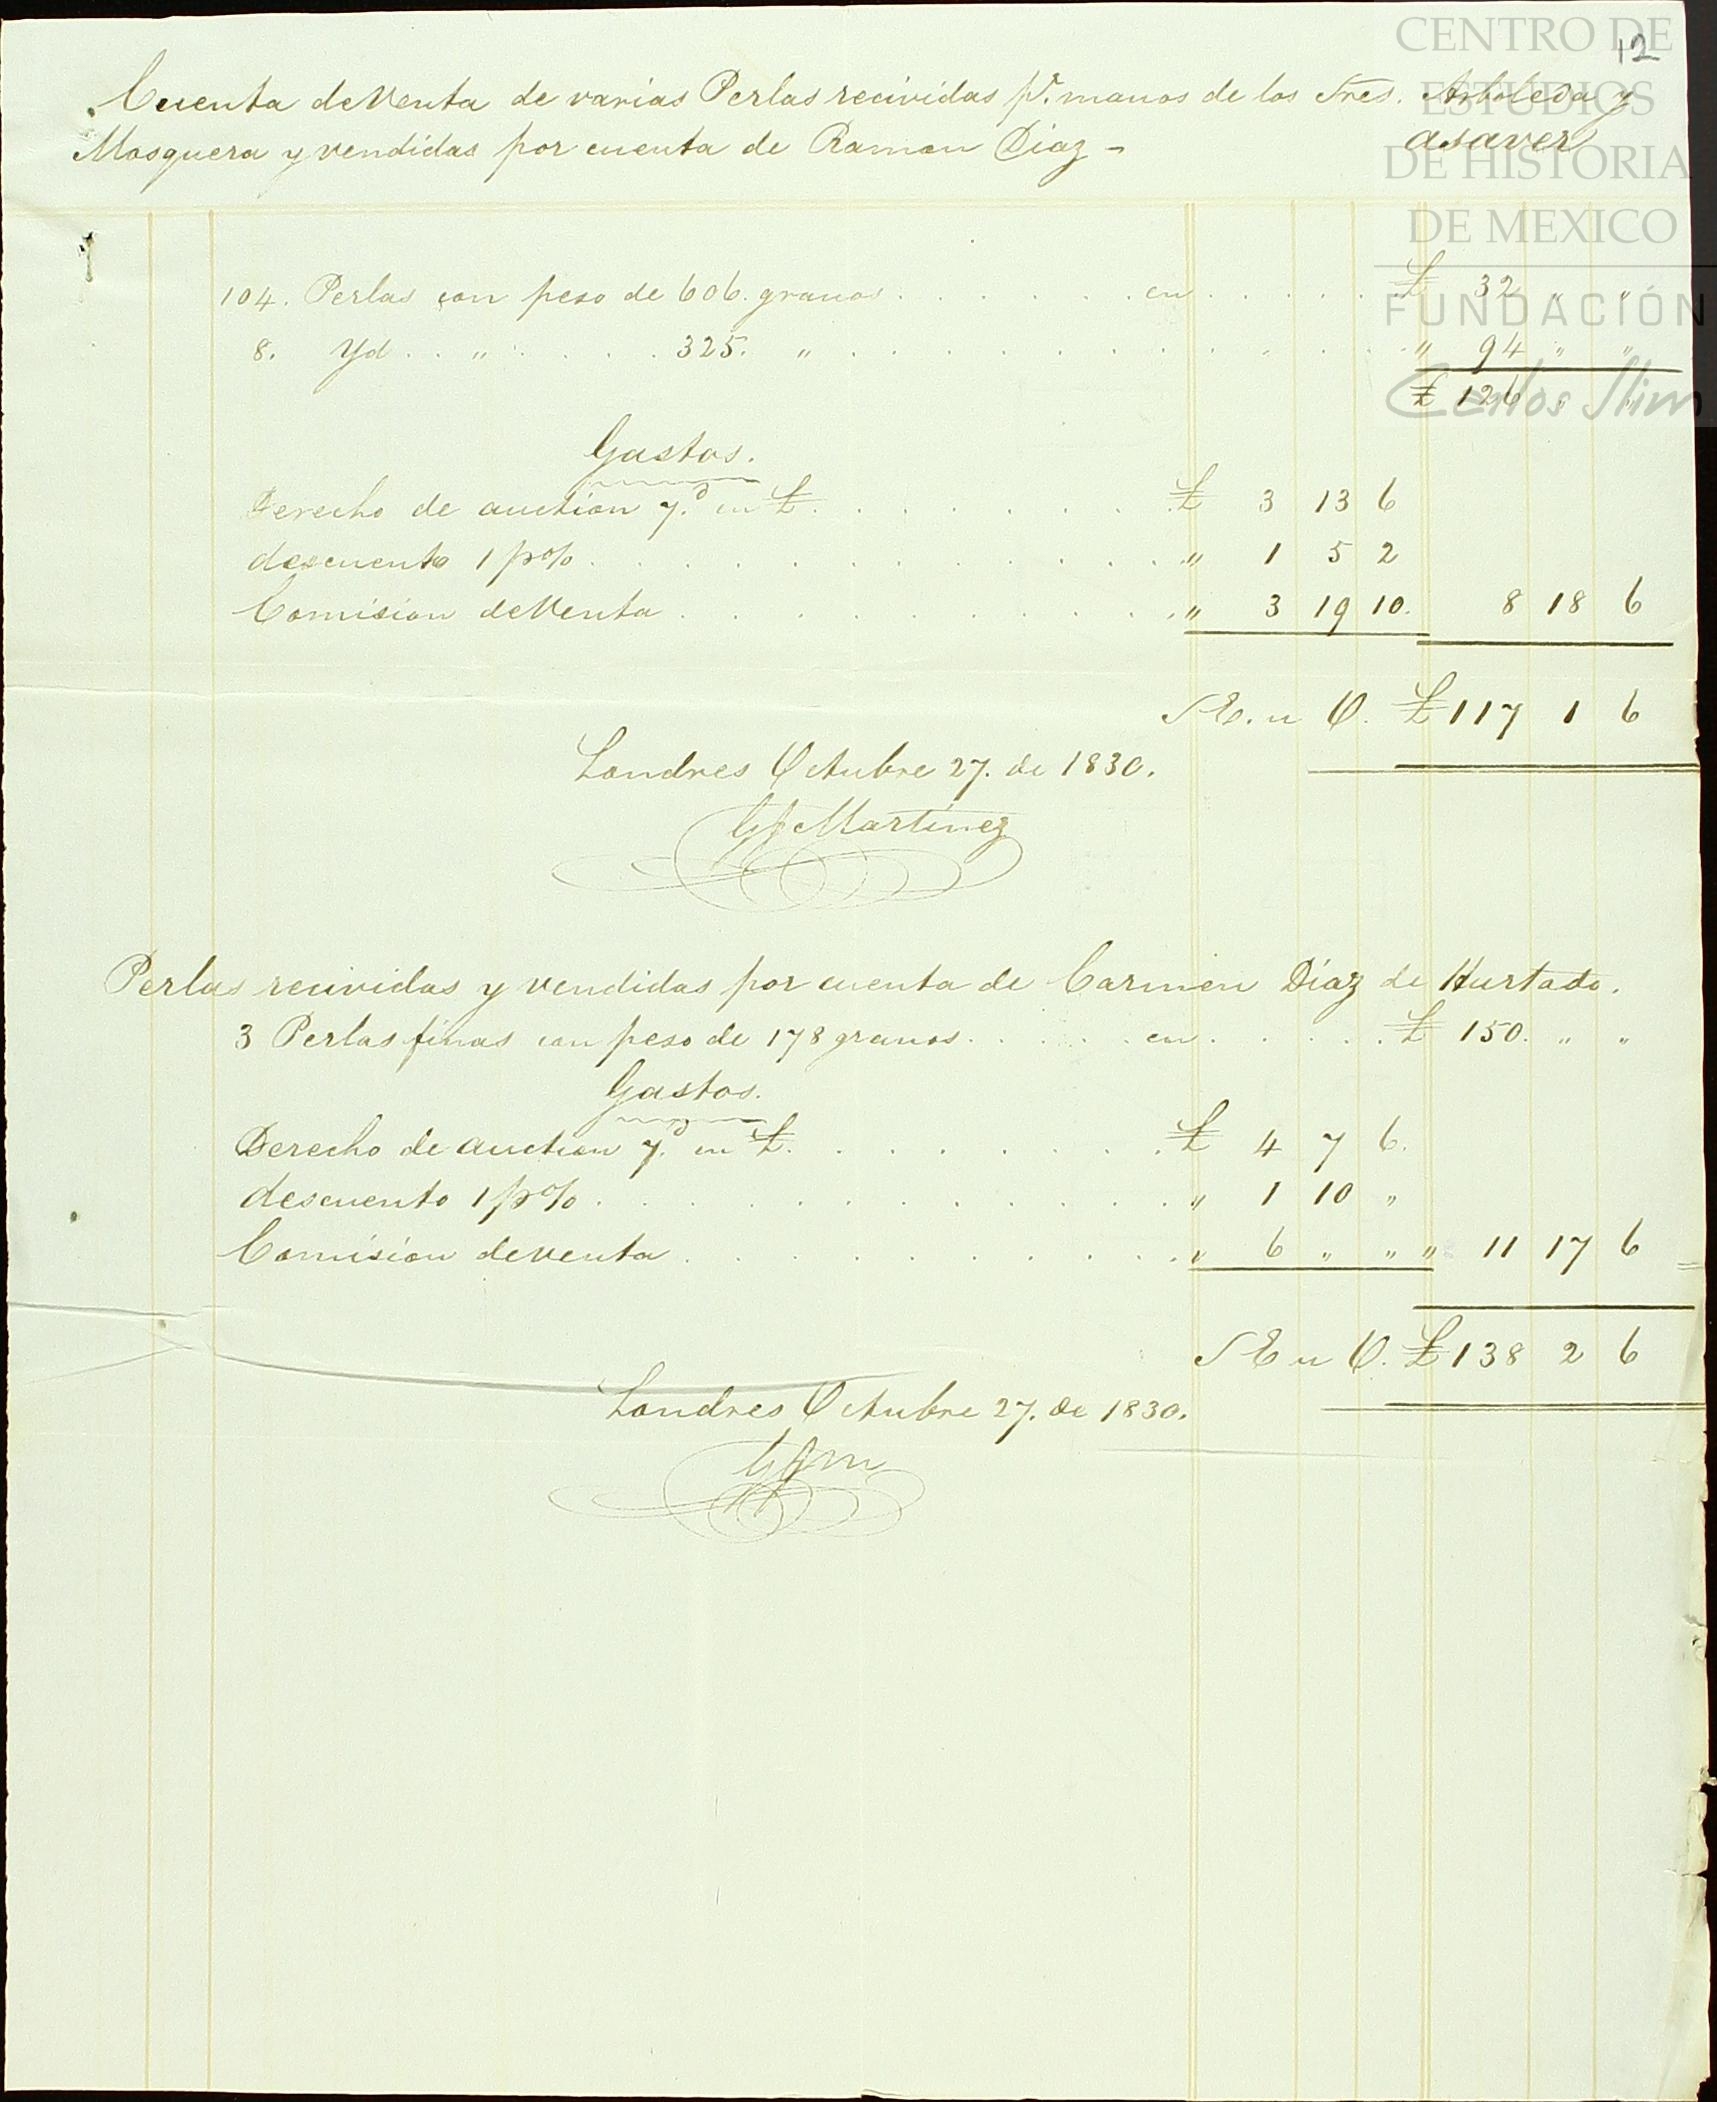 CENTRO DE
ESTUDIOS
DE HISTORIA
DE MEXICO
FUNDACIÓN
Carlos Slim
12
Cuenta de Venta de varias Perlas recividas pr. manos de los Sres. Arboleda y
Mosquera y vendidas por cuenta de Ramon Diaz - asaver
104. Perlas con peso de 606. granos . . . . . . en . . . . . £ 32 " "
8. Yd . . " . . . . 325. " . . . . . . . . . . " 94 " "
£ 126 " "
Gastos.
Derecho de auction 7.d en £ . . . . . . . £ 3 13 6
descuento 1 p% . . . . . . . . . . " 1 5 2
Comision de Venta . . . . . . . . . " 3 19 10. 8 18 6
S. E. u O. £ 117 1 6
Londres Octubre 27. de 1830.
GJMartinez
Perlas recividas y vendidas por cuenta de Carmen Díaz de Hurtado.
3 Perlas finas con peso de 178 granos . . . . . en . . . . £ 150. " "
Gastos.
Derecho de auction 7.d en £ . . . . . . . £ 4 7 6.
descuento 1 p% . . . . . . . . . . " 1 10 "
Comision de venta . . . . . . . . . " 6 " " " 11 17 6
S E u O. £ 138 2 6
Londres Octubre 27. de 1830.
GJM